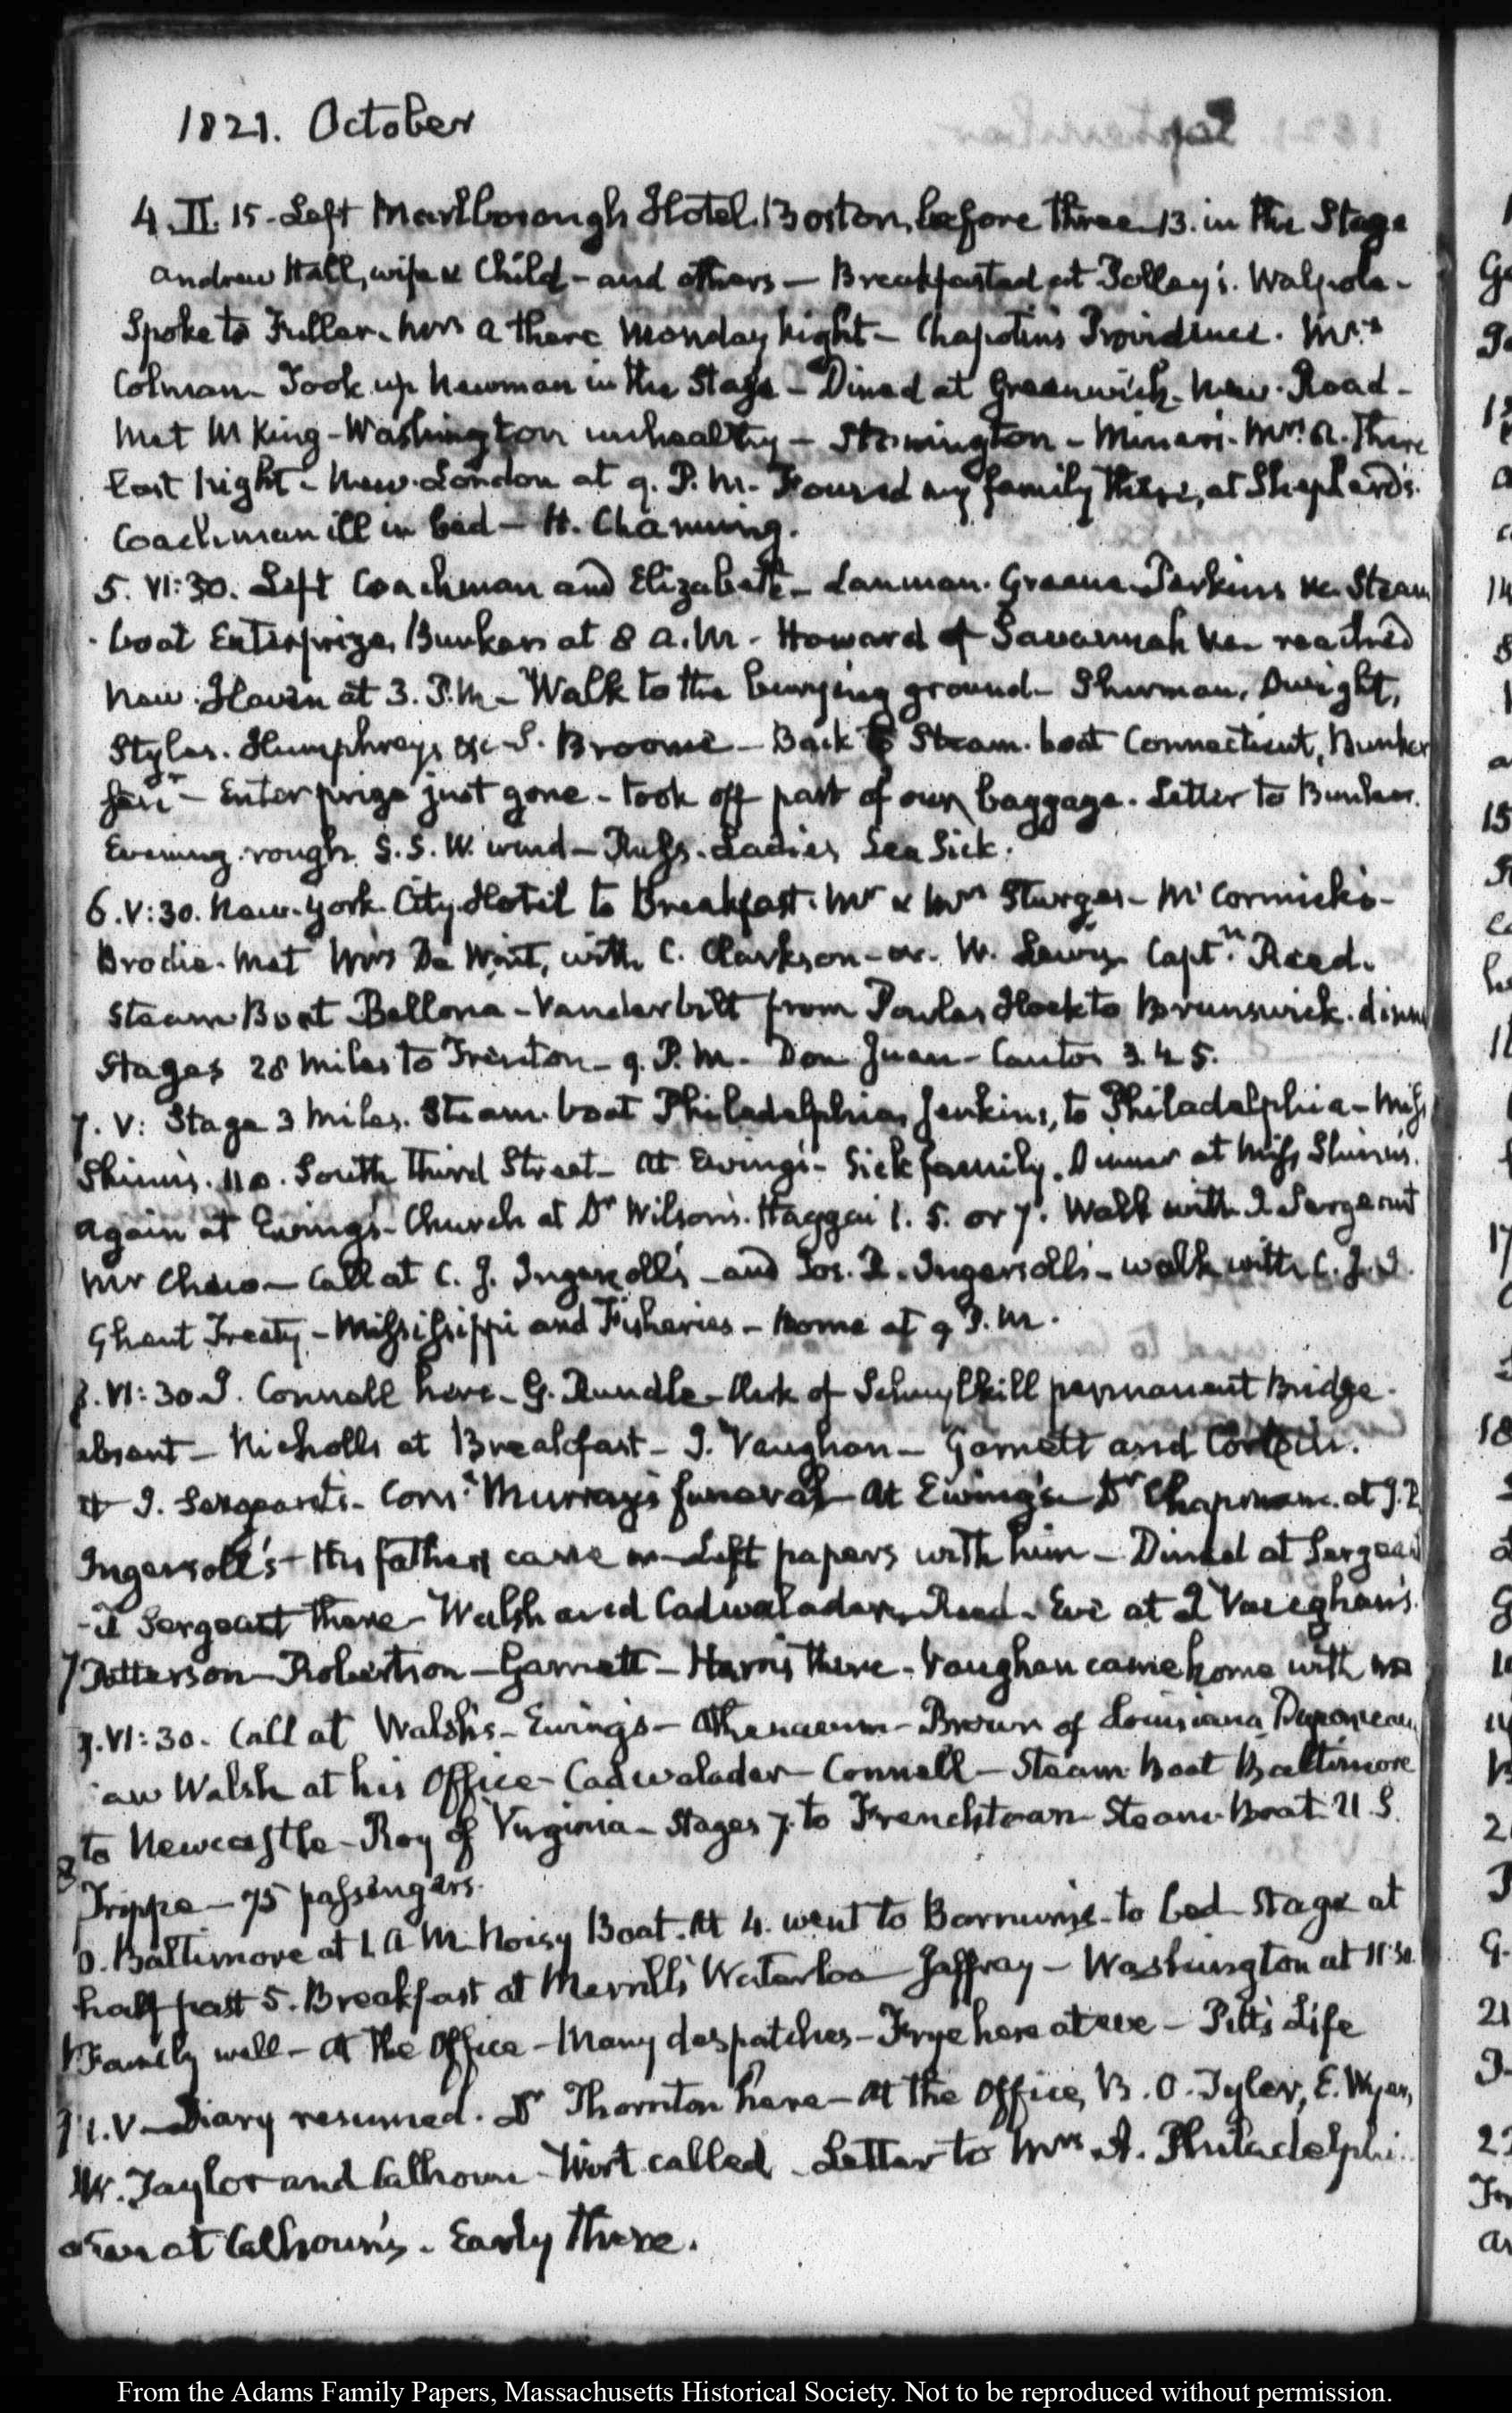 1821. October
4. II. 15. Left Marlborough Hotel, Boston, before three. 13. in the Stage
Andrew Hall, wife & Child – and others – Breakfasted at Polley's. Walpole –
Spoke to Fuller. Mrs A there Monday Night – Chapotin's Providence. Mrs
Colman – Took up Newman in the Stage – Dined at Greenwich – New Road –
Met M King – Washington unhealthy – Stonington – Minar's – Mrs A. There
last Night – New London at 9. P.M. Found my family there, at Shephard's.
Coachman ill in bed – H. Channing.
5. VI:30. Left Coachman and Elizabeth – Lanman. Greene Perkins &c. Steam
boat Enterprize, Bunker at 8 A.M. – Howard of Savannah &c – reached
New Haven at 3. P.M. – Walk to the burying ground – Sherman, Dwight,
Styles. Humphreys &c – S. Broome – Back to Steam boat Connecticut, Bunker
senr – Enterprize just gone – took off part of our baggage. Letter to Bunker.
Evening rough S.S.W. wind – Ladies Sea Sick.
6. V:30. New-York City Hotel to Breakfast. Mr & Mrs Sturges – McCormick's –
Brodie. Met Mrs De Wint, with C. Clarkson – W. Lewis Captn Reed.
Steam Boat Bellona – Vanderbilt from Powles Hook to Brunswick. dinner
Stages 28 Miles to Trenton – 9. P.M. Don Juan – Cantos 3. 4 5.
7. V: Stage 3 Miles. Steam boat Philadelphia, Jenkins, to Philadelphia – Miss
Shinn's. 110. South third Street – At Ewing's – Sick family. Dinner at Miss Shinn's.
Again at Ewing's – Church at Dr Wilson's. Haggai 1. 5. or 7. Walk with J. Sergeant
Mr Chew – Call at C. J. Ingersoll's – and Jos. R. Ingersoll's – walk with C. J. I.
Ghent Treaty – Mississippi and Fisheries – Home at 9 P.M.
8. VI:30 J. Connell here – G. Rundle – Clerk of Schuylkill permanent Bridge –
absent – Nicholls at Breakfast – J. Vaughan – Garnett and
at J. Sergeant's – Comr Murray's funeral – At Ewing's – Dr Chapman. at J. R
Ingersoll's – His father came in – Left papers with him – Dined at Sergeant
– Sergeant there – Walsh and Cadwalader, Reed – Eve at J Vaughan's
Patterson – Robertson – Garnett – Harris there – Vaughan came home with me
9. VI:30. Call at Walsh's – Ewing's – Athenaeum – Brown of Louisiana Duponceau
saw Walsh at his Office – Cadwalader – Connell – Steam Boat Baltimore
to Newcastle – Roy of Virginia – Stages 7. to Frenchtown – Steam Boat U.S.
Trippe – 75 passengers.
10. Baltimore at 1 A M. Noisy Boat. At 4. went to Barnum's – to bed – Stage at
half past 5. Breakfast at Merrill's Waterloo – Jaffray – Washington at 11:30.
Family well – At the Office – Many despatches – Frye here at eve – Pitt's Life
11. V – Diary resumed. Dr Thornton here – At the Office, B. O. Tyler, E. Wyer,
W. Taylor and Calhoun – Wirt called – Letter to Mrs A. Philadelphi
at Calhoun's – Early there.
From the Adams Family Papers, Massachusetts Historical Society. Not to be reproduced without permission.